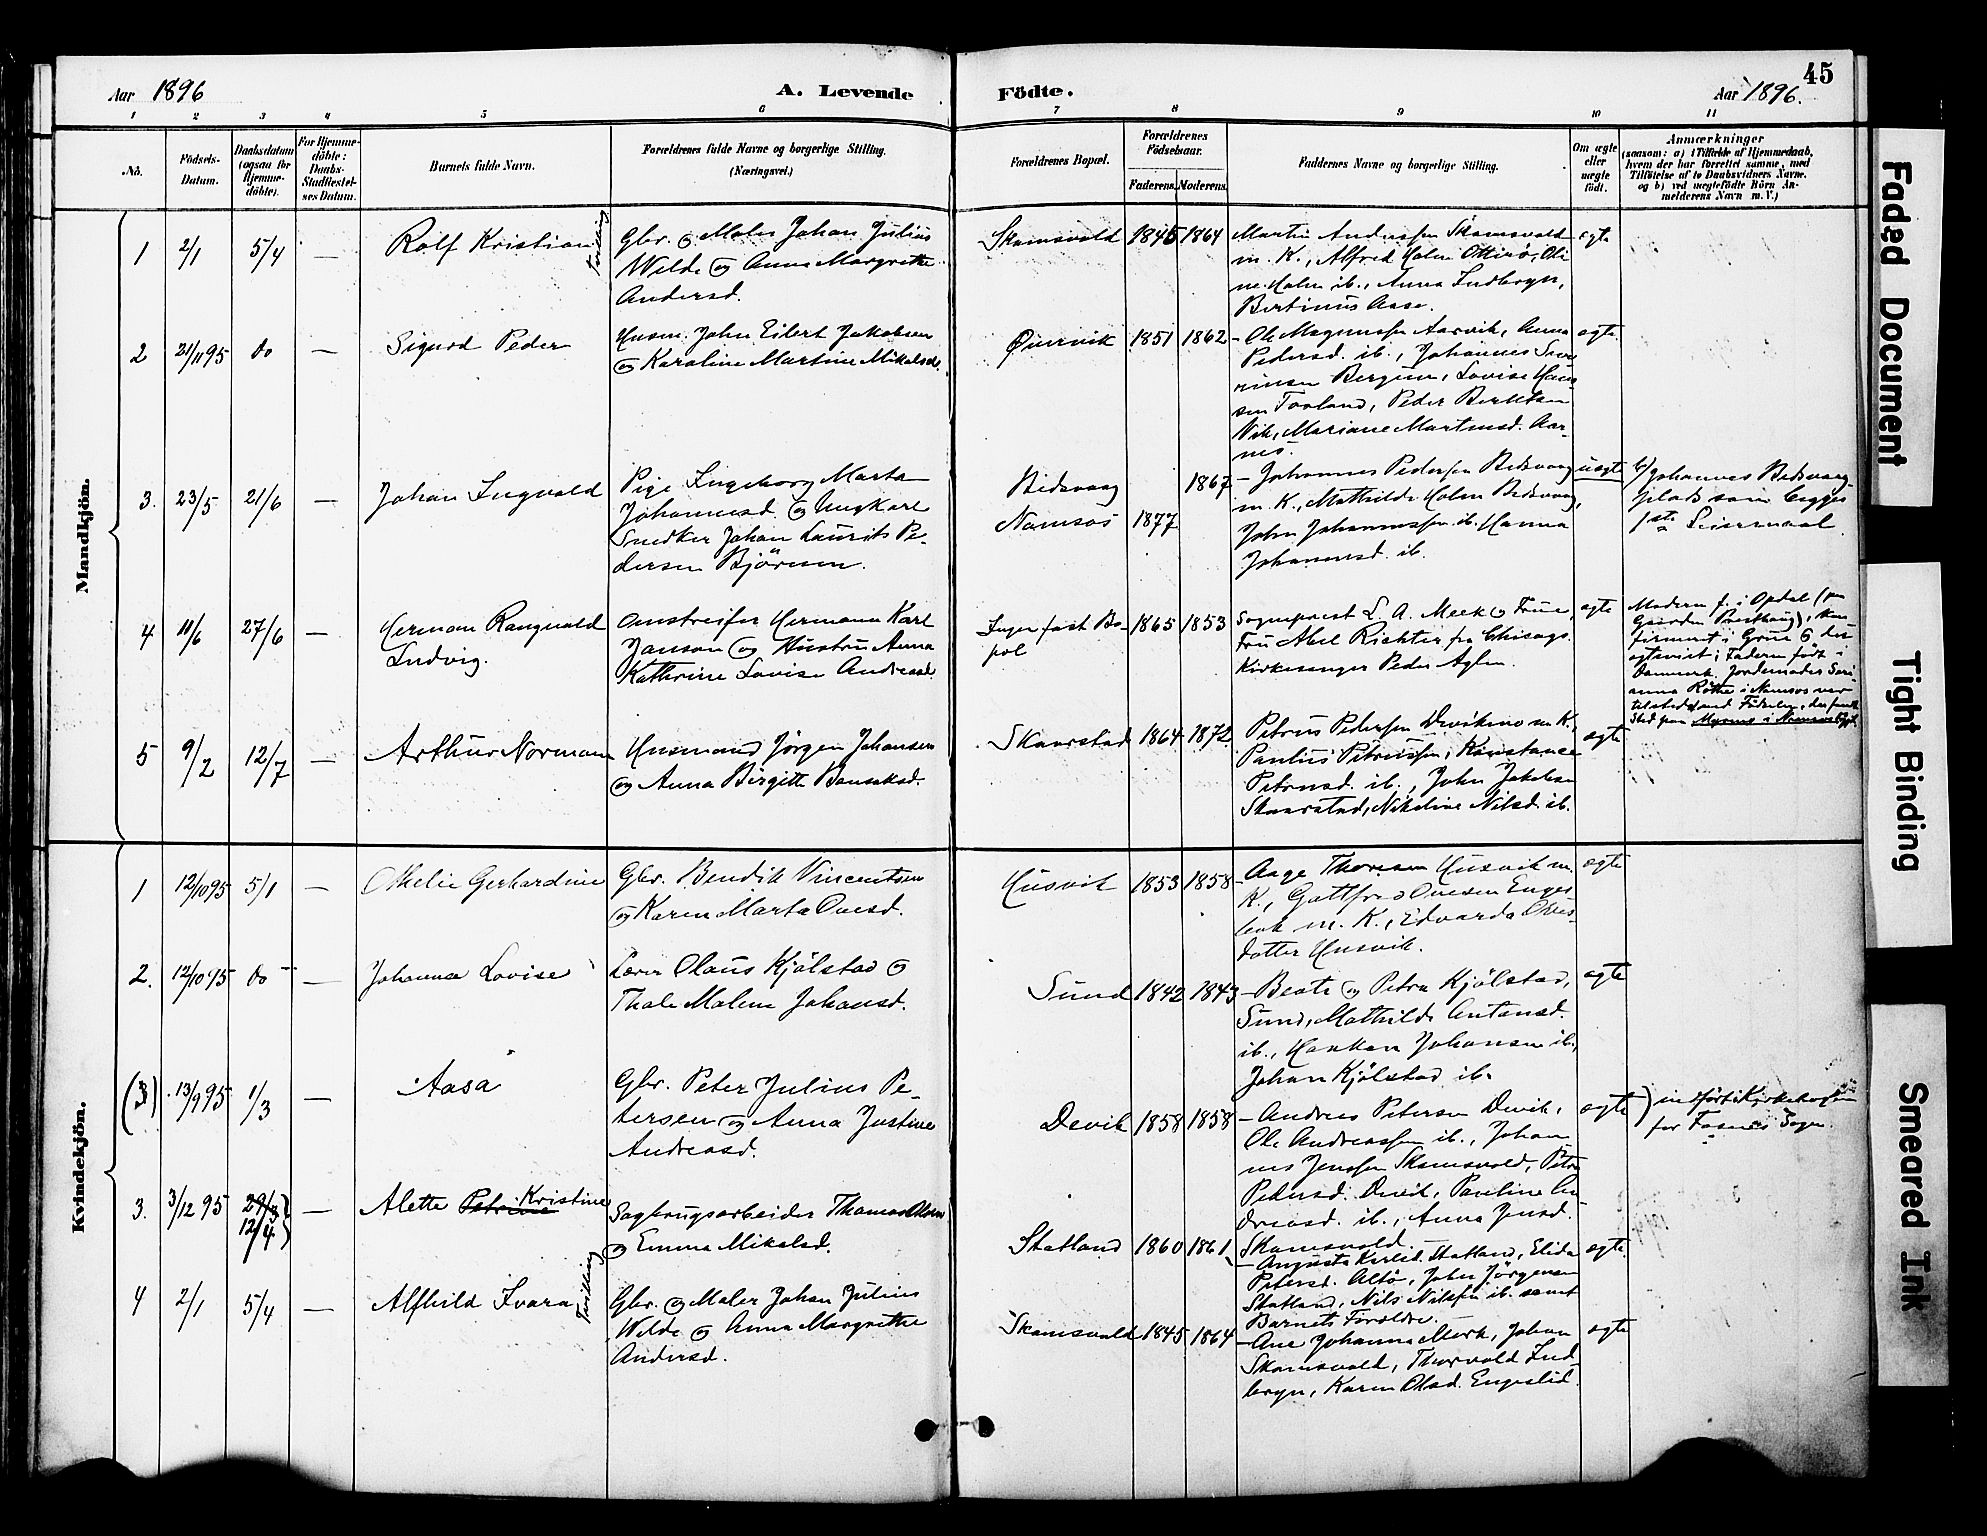 Aar 1896
A. Levende
Födte.
Aar 1896.
45
1 2 3 4 5 6 7 8 9 10 11
No.
Födsels-
Datum.
Daabsdatum
(ogsaa for
Hjemme-
döbte).
For Hjemme-
döbte:
Daabs-
Stadfæstel-
ses Datum.
Barnets fulde Navn.
Forældrenes fulde Navne og borgerlige Stilling.
(Næringsvei.)
Forældrenes Bopæl.
Forældrenes
Födselsaar.
Faderens. Moderens.
Faddernes Navne og borgerlige Stilling.
Om ægte
eller
uægte
født.
Anmærkninger
(saasom: a) i Tilfælde af Hjemmedaab,
hvem der har forrettet samme, med
Tilföielse af to Daabsvidners Navne,
og b) ved uægtefödte Börn An-
melderens Navn m. V.)
Mandkjön.
1 2/1 5/4 — Rolf Kristian Tvilling
Gbr. og Maler Johan Julius
Wilde og Anna Margrethe
Andersd.
Skamsvold 1845 1864
Martin Anderssen Skamsvold
m. K., Alfred Holm Otterø, Oli-
ne Holm ib., Anna Indbryn,
Bertinus Aase.
ægte
2 21/11 95 do — Sigurd Peder
Husm. John Eilert Jakobsen
og Karoline Martine Mikalsd.
1851 1862
— Ole Magnussen Aarvik, Anna
Pedersd. ib., Johannes Seve-
rinsen Bergum, Lovise Han-
sen Tooland, Peder Berntsen
Vik, Mariane Martinusd. Aar-
nes.
ægte
3. 23/5 21/6 — Johan Ingvald
Pige Ingeborg Marta
Johannesd. og Ungkarl
Snedker Johan Laurits Pe-
dersen Bjørnen.
Bidsvaag 1867
Namsos 1877
— Johannes Pedersen Bidsvaag
m. K., Mathilde Holm Bidsvaag,
John Johannessen ib. Hanna
Johannesd. ib.
uægte
b) Johannes Bidsvaag-
plads som begges
1ste Leiermaal.
4 11/6 27/6 — Herman Rangvald
Ludvig.
Omstreifer Hermann Karl
Janson og Hustru Anna
Kathrine Lovise Andreasd.
Ingen fast Bo-
pæl 1865 1853
Sogneprest L. A. Meek og Frue,
Fru Abel Richter fra Chicago.
Kirkesanger Peder Aglen.
ægte
Moderen f. i Opdal (paa
Gaarden Presthaug), kon-
firmeret i Grue og der
ægteviet; Faderen født i
Danmark. Jordemoder Seri-
anna Røthe i Namsos var
tilstede ved Fødselen, der fandt
Sted paa
5 9/2 12/7 — Arthur Norman
Husmand Jørgen Johansen
og Anna Birgitte Bensaksd.
Skaarstad 1864 1872
Petrus Pedersen Devikmo m. K.,
Paulus Petrussen, Konstance
Petrusd. ib., John Jakobsen
Skaarstad, Nikoline Nilsd. ib.
ægte
Kvindekjön.
1 12/10 95 5/1 — Othelie Gerhardine
Gbr. Bendik Vincentsen
og Karen Marta Ovesd.
Husvik 1853 1858
— Aage Thoresen Husvik m.
K., Gottfred Ovesen Enges-
bak m. K., Edvarda Oves-
datter Husvik.
ægte
2. 12/10 95 do — Johanna Lovise
Lærer Olaus Kjølstad og
Thale Malene Johansd.
Sund 1842 1843
— Beate og Petra Kjølstad,
Sund, Mathilde Antonsd.
ib., Haakon Johansen ib.,
Johan Kjølstad ib.
ægte
(3) 13/9 95 1/3 — Aasa
Gbr. Peter Julius Pe-
tersen og Anna Justine
Andreasd.
Devik 1858 1858
— Andreas Petersen Devik,
Ole Andreassen ib., Johan-
nes Jenssen Skamsvold, Petra
Pedersd. Devik, Pauline An-
dreasd. ib., Anna Jensd.
Skamsvold.
ægte
) indført i Kirkebogen
for Fosnes Sogn.
3. 3/12 95 29/3 12/4 — Alette Petrine Kristine
Sagbrugsarbeider Thomas Olsen
og Emma Mikalsd.
Statland 1860 1861
— Augusta Karlsd. Statland, Elida
Petersd. Altø, John Jørgensen
Statland, Nils Nilssen ib. samt
Barnets Forældre.
ægte
4 2/1 5/4 — Alfhild Ivara Tvilling
Gbr. og Maler Johan Julius
Wilde og Anna Margrethe
Andersd.
Skamsvold 1845 1864
— Ane Johanna Mork, Johan
Skamsvold, Thorvald Ind-
bryn, Karen Olsd. Engeslid.
ægte
Faded Document
Tight Binding
Smeared Ink